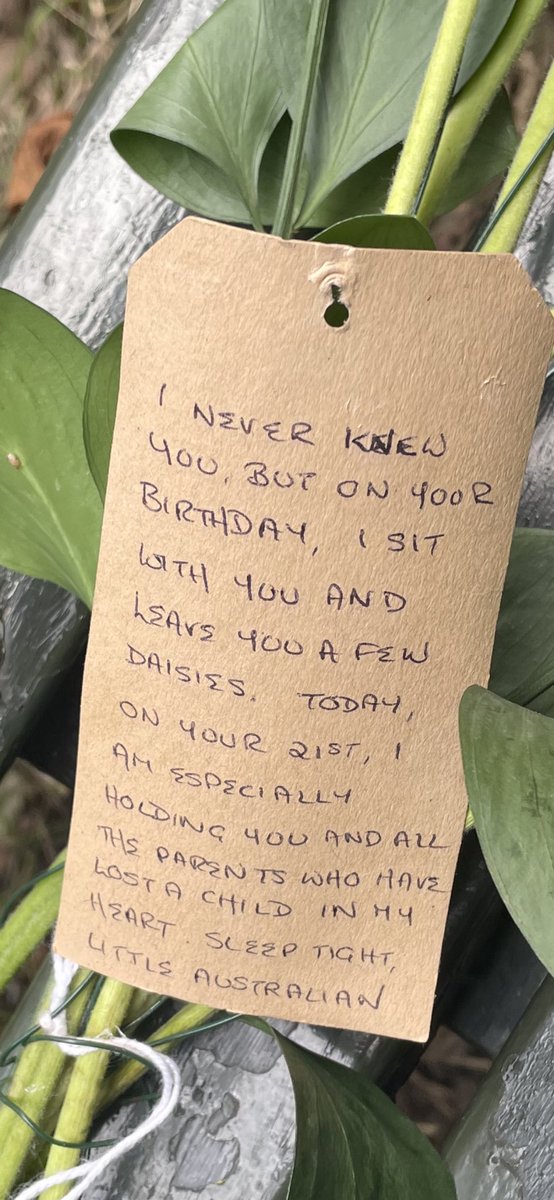 I NEVER KNEW
YOU, BUT ON YOUR
BIRTHDAY, I SIT
WITH YOU AND
LEAVE YOU A FEW
DAISIES. TODAY,
ON YOUR 21ST, I
AM ESPECIALLY
HOLDING YOU AND ALL
THE PARENTS WHO HAVE
LOST A CHILD IN MY
HEART. SLEEP TIGHT,
LITTLE AUSTRALIAN